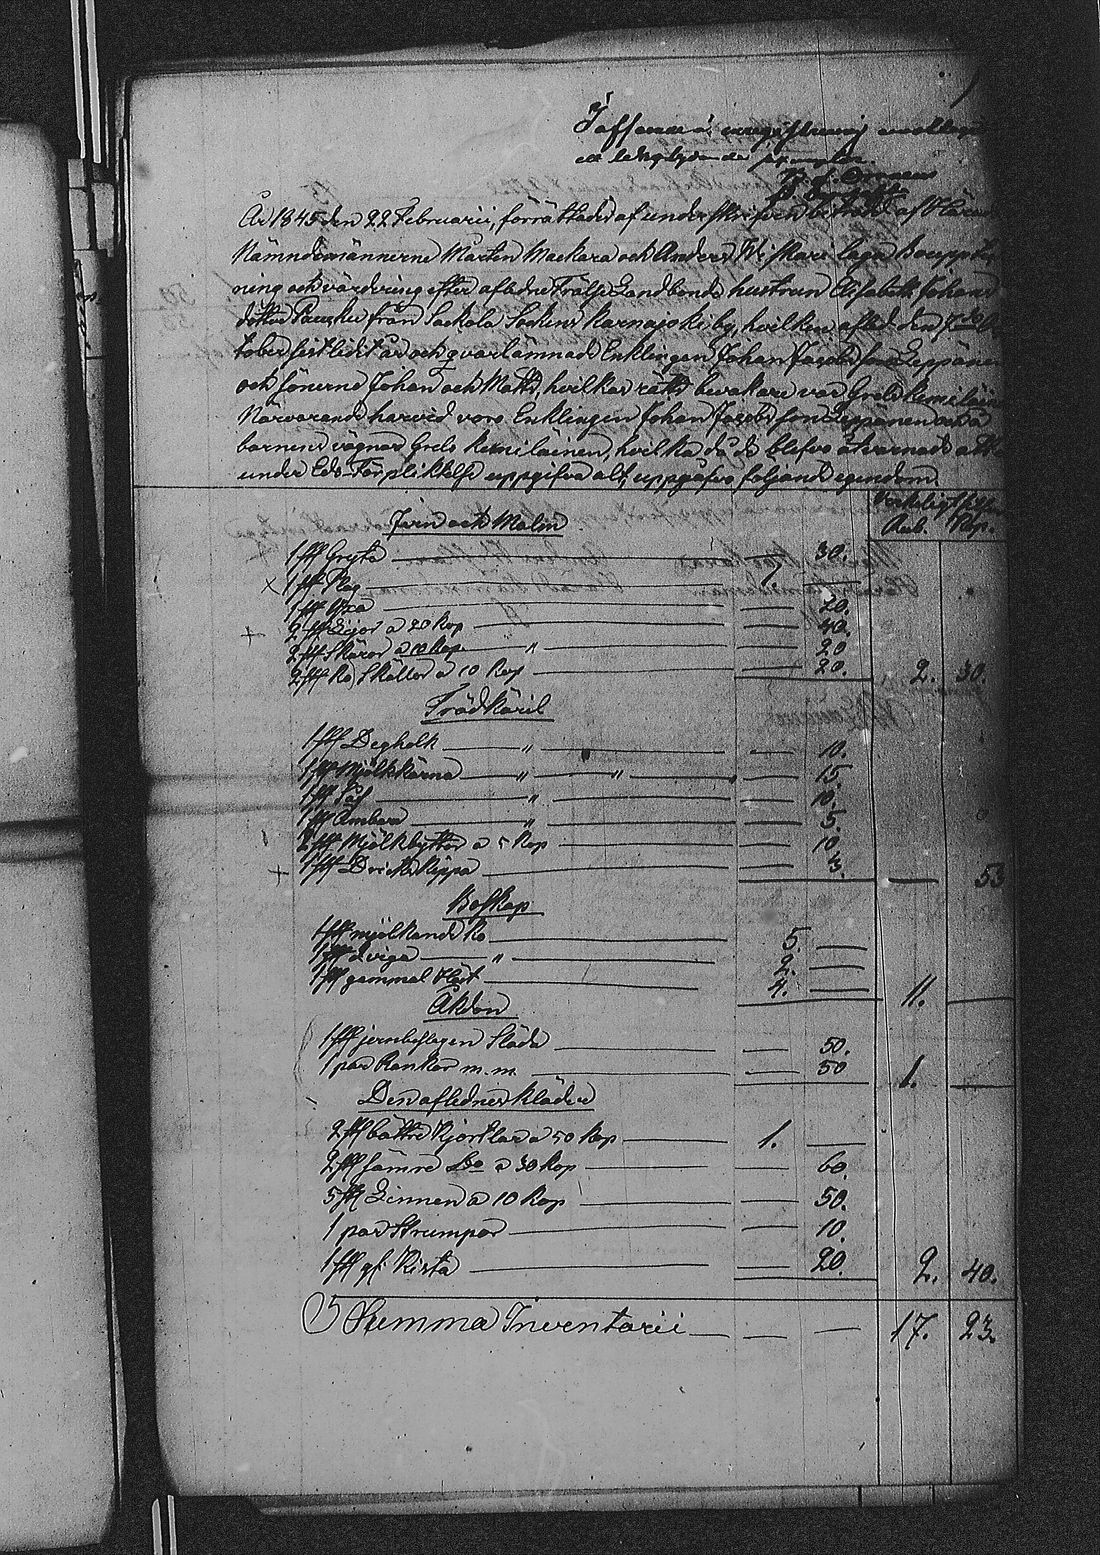 ett likalydande exemplar.
År 1845 den 22 Februarii, förrättades af underskrifven biträdd af Härads
Nämndemännerne Mårten Mackara och Anders Wiskari laga Bouppteck
ning och värdering efter aflednе Frälse Landbonde hustrun Elisabeth Johans
dotter Paukku från Sackola Sockens Karnajoki by, hvilken afled den 7de Oc
tober sistledit år och qvarlämnade Enklingen Johan Jacobsson Leppänen
och sönerne Johan och Matts, hvilkas rätt bevakare var Grels Kemiläinen
Närvarande härvid voro Enklingen Johan Jacobsson Leppänen och å
barnens vägnar Grels Kemiläinen, hvilka då de blefvo åtvarnade att
under Eds Förpliktelse uppgifva alt, uppgåfvo följande egendom.
Rub. Kop.
Jern och Malm
1 st Gryta — 30.
x 1 st Plog 1. —
1 st Yxa — 20.
+ 2 st Lijor a 20 Kop — 40.
2 st Skäror a 10 Kop " — 20
2 st Ko Skällor a 10 Kop — 20. 2. 30.
Trädkäril
1 st Degholk " — 10.
1 st Mjölkkärna " " " — 15.
1 st " — 10.
1 st Ambare " — 5.
2 st Mjölkbyttor a 5 Kop — 10
+ 1 st Dricks Käppa — 3. — 53
Boskap
1 st mjölkande Ko 5. —
1 st qviga " 2. —
1 st gammal Häst 4. — 11. —
Åkdon
1 st jernbeslagen Släda — 50.
1 par Rankor m.m. — 50 1. —
Den aflednes kläder
2 st bättre Kjortlar a 50 Kop 1. —
2 st sämre Do a 30 Kop — 60.
5 st Linnen a 10 Kop — 50.
1 par Strumpor — 10.
1 st gl. Kista — 20. 2. 40.
Summa Inventarii — — 17. 23.